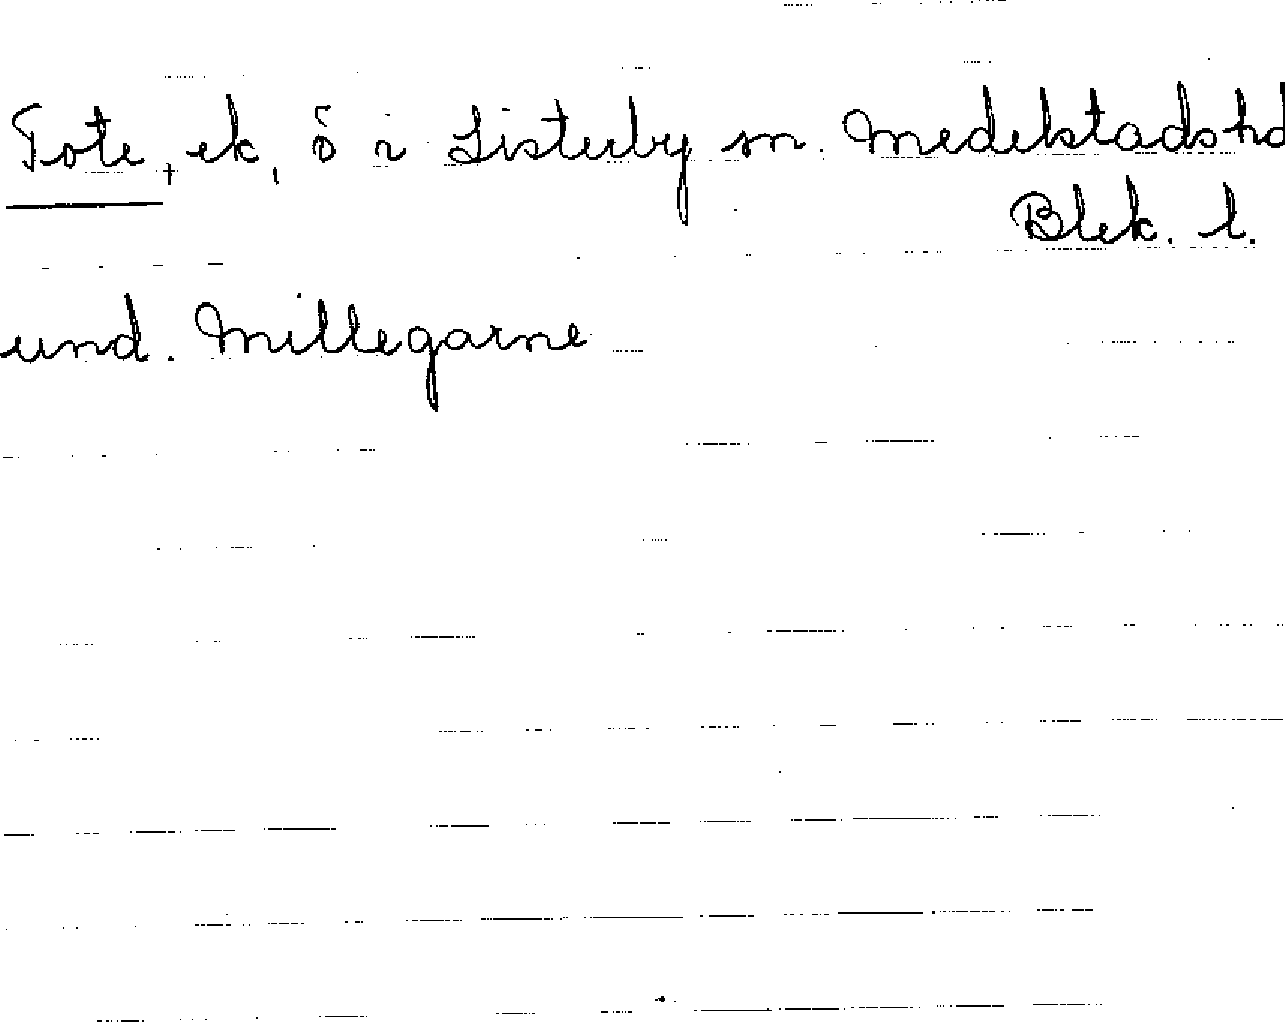 Tote, ek, ö i Listerby sn. Medelstads hd
Blek. l.
und. Millegarne